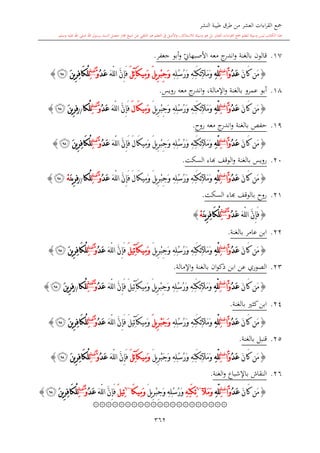 جمع القراءات العشر من طرق طيبة النشر
١٧. قالون بالغنة واندرج معه الأصبهاني وأبو جعفر.
﴿ مَن كَانَ عَدُوًّا لِّلَّهِ وَمَلَـٰٓئِكَتِهِۦ وَرُسُلِهِۦ وَجِبْرِيلَ وَمِيكَـٰٓئِلَ فَإِنَّ ٱللَّهَ عَدُوٌّ لِّلْكَـٰفِرِينَ ٩٨ ﴾
١٨. أبو عمرو بالغنة والإمالة، واندرج معه رويس.
﴿ مَن كَانَ عَدُوًّا لِّلَّهِ وَمَلَـٰٓئِكَتِهِۦ وَرُسُلِهِۦ وَجِبْرِيلَ وَمِيكَالَ فَإِنَّ ٱللَّهَ عَدُوٌّ لِّلْكَـٰفِرِينَ ٩٨ ﴾
١٩. حفص بالغنة واندرج معه روح.
﴿ مَن كَانَ عَدُوًّا لِّلَّهِ وَمَلَـٰٓئِكَتِهِۦ وَرُسُلِهِۦ وَجِبْرِيلَ وَمِيكَالَ فَإِنَّ ٱللَّهَ عَدُوٌّ لِّلْكَـٰفِرِينَ ٩٨ ﴾
٢٠. رويس بالغنة والوقف بهاء السكت.
﴿ مَن كَانَ عَدُوًّا لِّلَّهِ وَمَلَـٰٓئِكَتِهِۦ وَرُسُلِهِۦ وَجِبْرِيلَ وَمِيكَالَ فَإِنَّ ٱللَّهَ عَدُوٌّ لِّلْكَـٰفِرِينَهْ ٩٨ ﴾
٢١. روح بالوقف بهاء السكت.
﴿ فَإِنَّ ٱللَّهَ عَدُوٌّ لِّلْكَـٰفِرِينَهْ ﴾
٢٢. ابن عامر بالغنة.
﴿ مَن كَانَ عَدُوًّا لِّلَّهِ وَمَلَـٰٓئِكَتِهِۦ وَرُسُلِهِۦ وَجِبْرِيلَ وَمِيكَـٰٓئِيلَ فَإِنَّ ٱللَّهَ عَدُوٌّ لِّلْكَـٰفِرِينَ ٩٨ ﴾
٢٣. الصوري عن ابن ذكوان بالغنة والإمالة.
﴿ مَن كَانَ عَدُوًّا لِّلَّهِ وَمَلَـٰٓئِكَتِهِۦ وَرُسُلِهِۦ وَجِبْرِيلَ وَمِيكَـٰٓئِيلَ فَإِنَّ ٱللَّهَ عَدُوٌّ لِّلْكَـٰفِرِينَ ٩٨ ﴾
٢٤. ابن كثير بالغنة.
﴿ مَن كَانَ عَدُوًّا لِّلَّهِ وَمَلَـٰٓئِكَتِهِۦ وَرُسُلِهِۦ وَجَبْرِيلَ وَمِيكَـٰٓئِيلَ فَإِنَّ ٱللَّهَ عَدُوٌّ لِّلْكَـٰفِرِينَ ٩٨ ﴾
٢٥. قنبل بالغنة.
﴿ مَن كَانَ عَدُوًّا لِّلَّهِ وَمَلَـٰٓئِكَتِهِۦ وَرُسُلِهِۦ وَجَبْرِيلَ وَمِيكَـٰٓئِلَ فَإِنَّ ٱللَّهَ عَدُوٌّ لِّلْكَـٰفِرِينَ ٩٨ ﴾
٢٦. النقاش بالإشباع والغنة.
﴿ مَن كَانَ عَدُوًّا لِّلَّهِ وَمَلَـٰٓئِكَتِهِۦ وَرُسُلِهِۦ وَجِبْرِيلَ وَمِيكَـٰٓئِيلَ فَإِنَّ ٱللَّهَ عَدُوٌّ لِّلْكَـٰفِرِينَ ٩٨ ﴾
٣٦٢